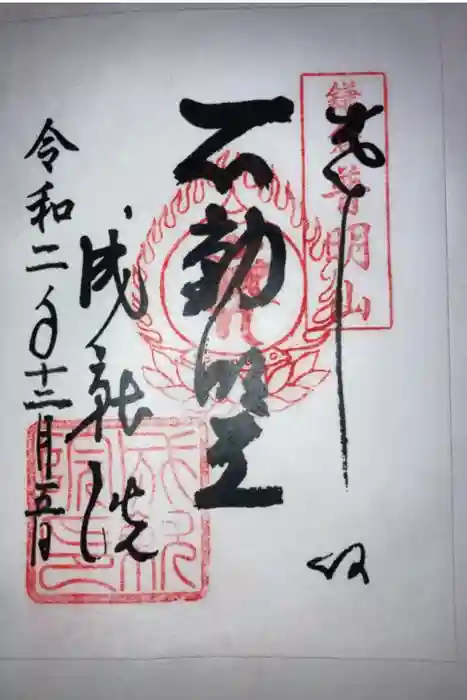 鎌倉普明山
奉拝
不動明王
成就院
令和二年十二月五日